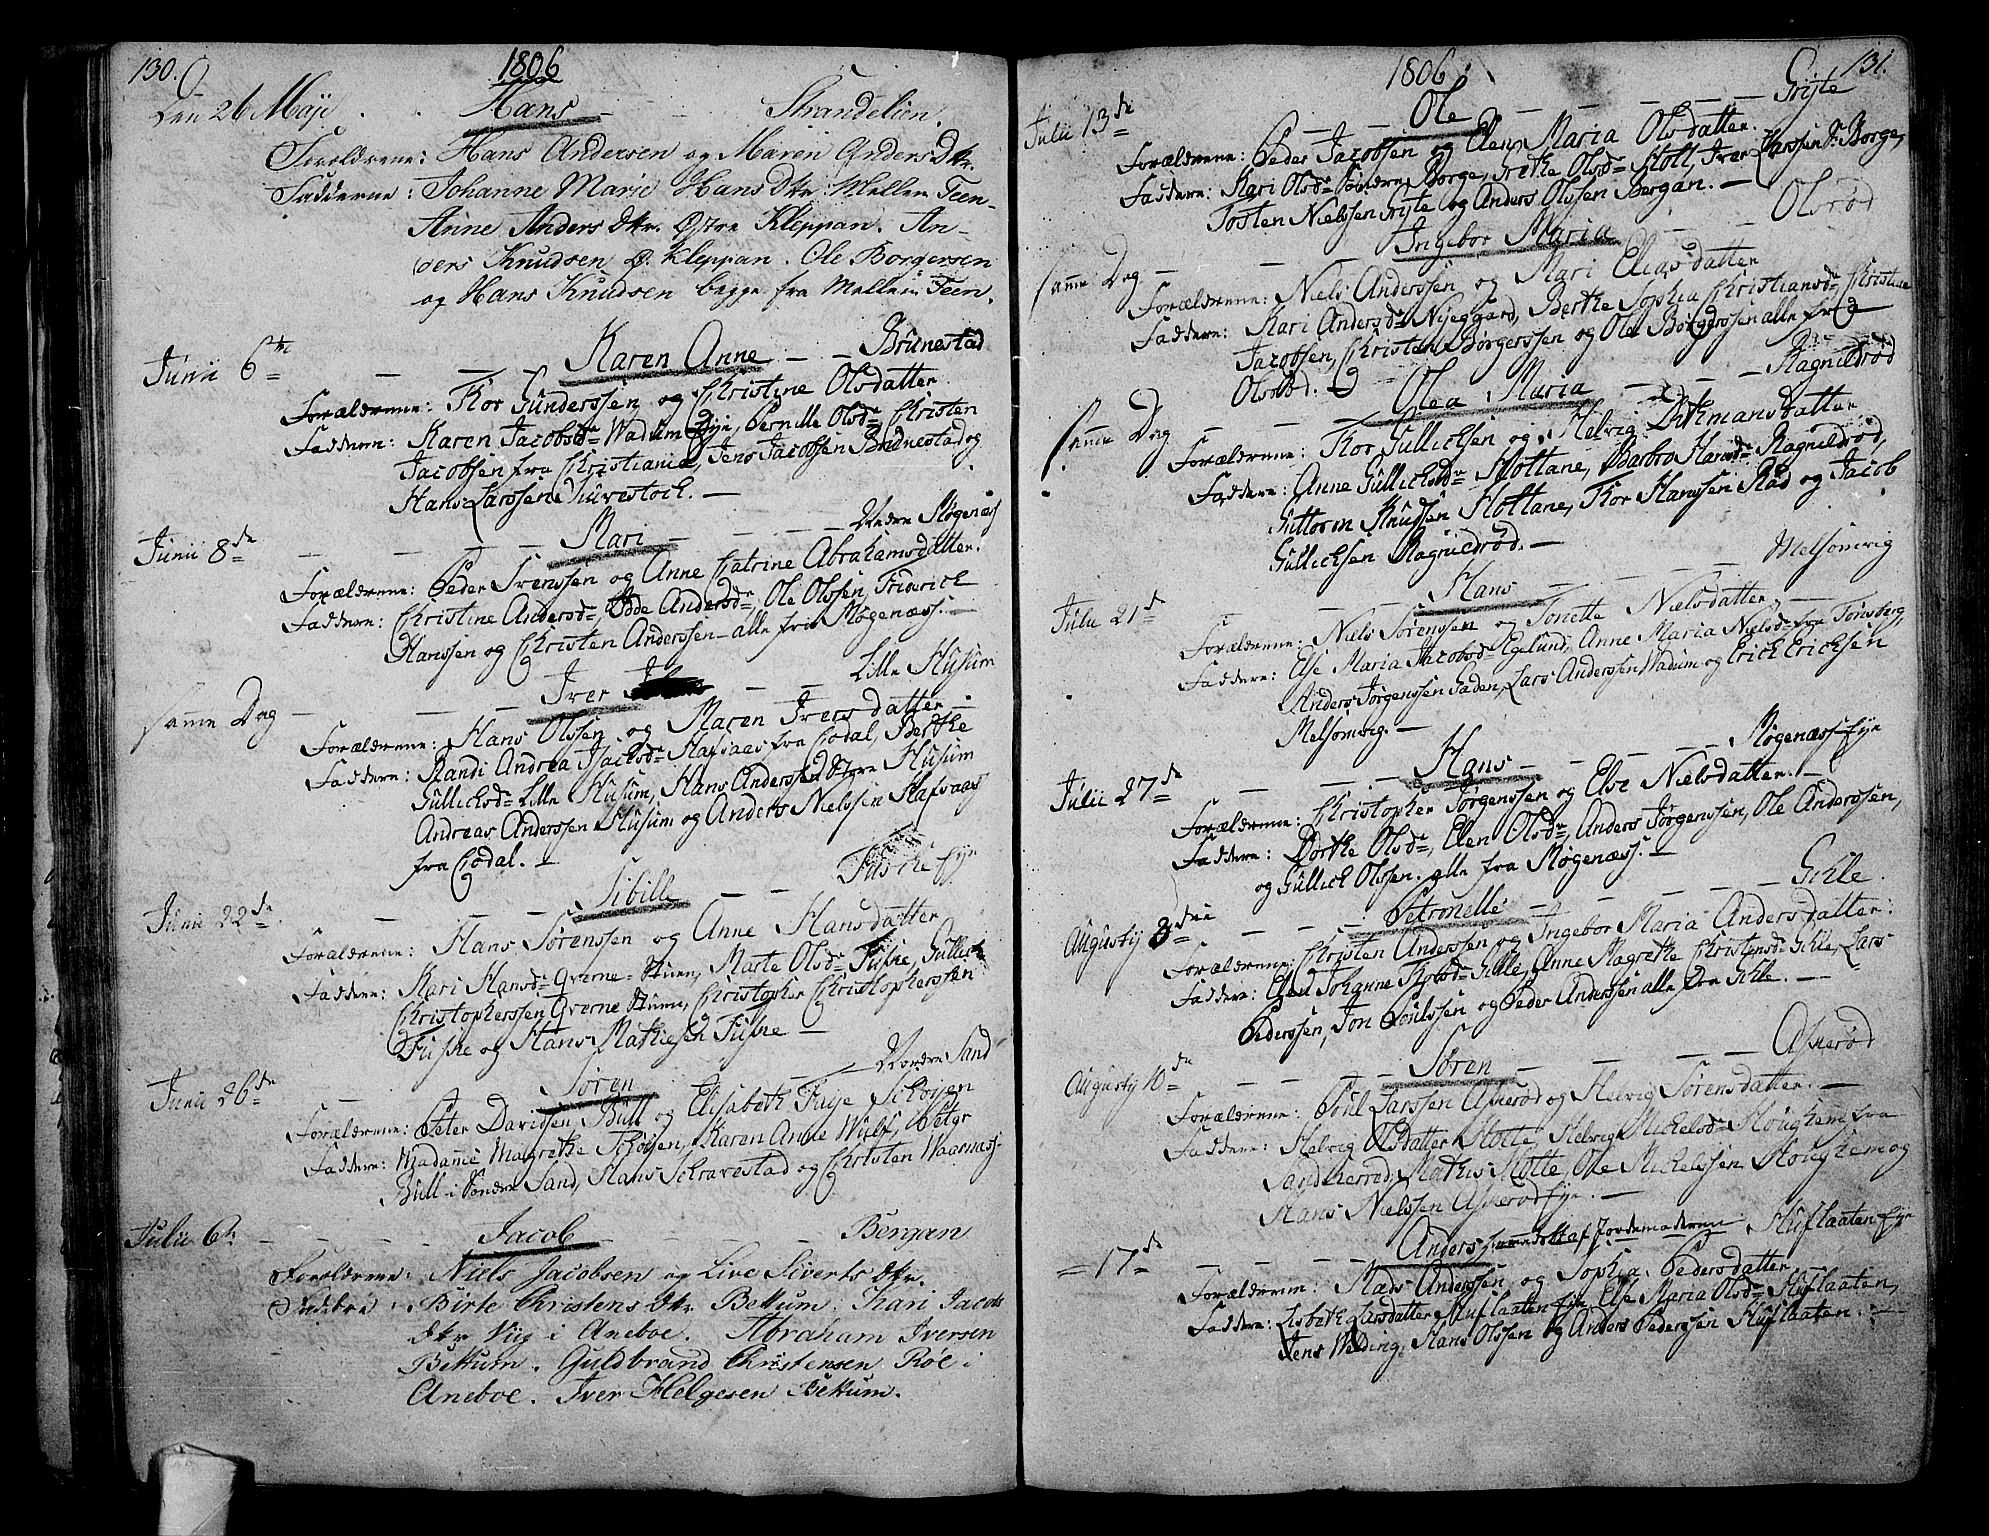 130.
1806
Den 26 Maji. Hans — Strandelien.
Foreldrene: Hans Andersen og Maren Anders Dtr.
Fadderne: Johanne Marie Hans Dtr. Mellem Teen.
Anne Anders Dtr. Østre Kleppan. An-
ders Knudsen Ø. Kleppan. Ole Borgersen
og Hans Knudsen begge fra Mellem Teen.
Junii 6te — — — Karen Anne — — Brunestad
Forældrene: Thor Gunderssen og Christine Olsdatter
Faddern: Karen Jacobsdr Wadum Eje, Pernille Olsdr Christen
Jacobsen fra Christiania, Jens Jacobsen Brunestad og
Hans Larssen Kurestock. —
Junii 8de — — — Mari — — — Nedre Møgenæss
Forældrene: Peder Svenssen og Anne Catrine Abrahamsdatter.
Faddere: Christine Andersdr, Andersdr, Ole Olssen, Friderick
Hanssen og Christen Anderssen — alle fra Møgenæss. —
samme Dag — — — Iver — — Lille Husum
Forældrene: Hans Olssen og Maren Ivers datter —
Faddere: Randi Andrea Jsacksdr Hafsaas fra Codal, Berthe
Gullicksdr Lille Husum, Hans Anderssen Store Husum
Andreas Anderssen Husum og Anders Nielssen Hafsaas
fra Codal. —
Junii 22de — — — Sibille — — Fuske Eje
Forældrene: Hans Sørenssen og Anne Hansdatter
Faddere: Kari Hansdr Qverne-Stuen, Marte Olsdr Fuske, Gullick
Christopherssen Qverne Stuen, Christopher Christopherssen
Fuske og Hans Mathiesen Fuske —
Junii 26de — — Søren — — Nordre Sand
Forældrene: Peter Davidsen Bull og Elisabeth Fuije Schøyen
Faddere: Madame Magrethe Schøisen, Karen Anne Wulf, Peter
Bull i Søndre Sand, Hans Schravestad og Christen Waarnæss
Julii 6te — — — Jacob — — — Bergan
Foreldrene: Niels Jacobsen og Live Siverts Dtr.
Birte Christens Dtr. Bettum. Kari Jacobs
Dtr. Viig i Aneboe. Abraham Iversen
Bettum. Guldbrand Christensen Røe i
Aneboe. Iver Helgesen Bettum.
1806
131.
Julii 13de — — Ole — — — — — Griste
Forældrene: Peder Jacobsen og Elen Maria Olsdatter.
Faddere: Kari Olsdr Søndre Borge, Olsdr Stoll, Iver Larssen Borge,
Tosten Nielssen Griste og Anders Olssen Bergan. —
samme Dag — — — Ingebor Maria — — Olsrød
Forældrene: Niels Anderssen og Mari Eliasdatter
Faddere: Kari Andersdr Nijeggard, Berthe Sophia Christiansdr, Christian
Jacobsen, Christen Børgerssen og Ole Børgerssen alle fra
Olsrød.
samme Dag — — — Olea Maria — — Ragnildrød
Forældrene: Thor Gullichsen og Helvig Ditmansdatter
Faddere: Anne Gullicksdr Holtane, Barbro Hansdr Ragnildrød,
Guttorm Knudsen Holtane, Thor Hanssen Rød og Jacob
Gullichsen Ragnildrød. —
Julii 21de — — — Hans — — — Melsomvig
Forældrene: Niels Sørenssen og Tonette Nielsdatter. —
Faddere: Else Maria Jacobsdr Egelund, Anne Maria Nielsdr fra Tønsberg,
Anders Jørgenssen Gaden, Lars Anderssen Wadum og Erick Ericksen
Melsomvig. —
Julii 27de — — — Hans — — — Møgenæss-Eje
Forældrene: Christopher Jørgenssen og Else Nielsdatter. —
Faddere: Dorthe Olsdr, Elen Olsdr, Anders Jørgenssen, Ole Anderssen,
og Gullick Olssen. alle fra Møgenæss. —
Augustij 3die — — — Petronelle — — — Gihle.
Forældrene: Christen Anderssen og Ingebor Maria Andersdatter:
Faddere: Elen Johanne Gihle, Anne Magrethe Christensdr Gihle, Lars
Pederssen, Jon Poulssen og Peder Anderssen alle fra Gihle. —
Augustij 10de — — — Søren — — — Askerød
Forældrene: Poul Larssen Askerød og Helvig Sørensdatter. —
Faddere: Helvig Olsdatter Holte, Helvig Mickelsdr Houghem fra
Sandherred, Mathis Holte, Ole Mickelssen Houghem og
Hans Nielssen Askerød Eje. —
— 17de — — — Anders hiemdøbt af Jordemoderen. Huflaaten Eje
Forældrene: Mads Anderssen og Sophia Pedersdatter
Faddere: Lisbeth Larsdatter Huflaaten Eje, Else Maria Olsdr Huflaaten,
Jens Weding, Hans Olssen og Anders Pederssen Huflaaten. —